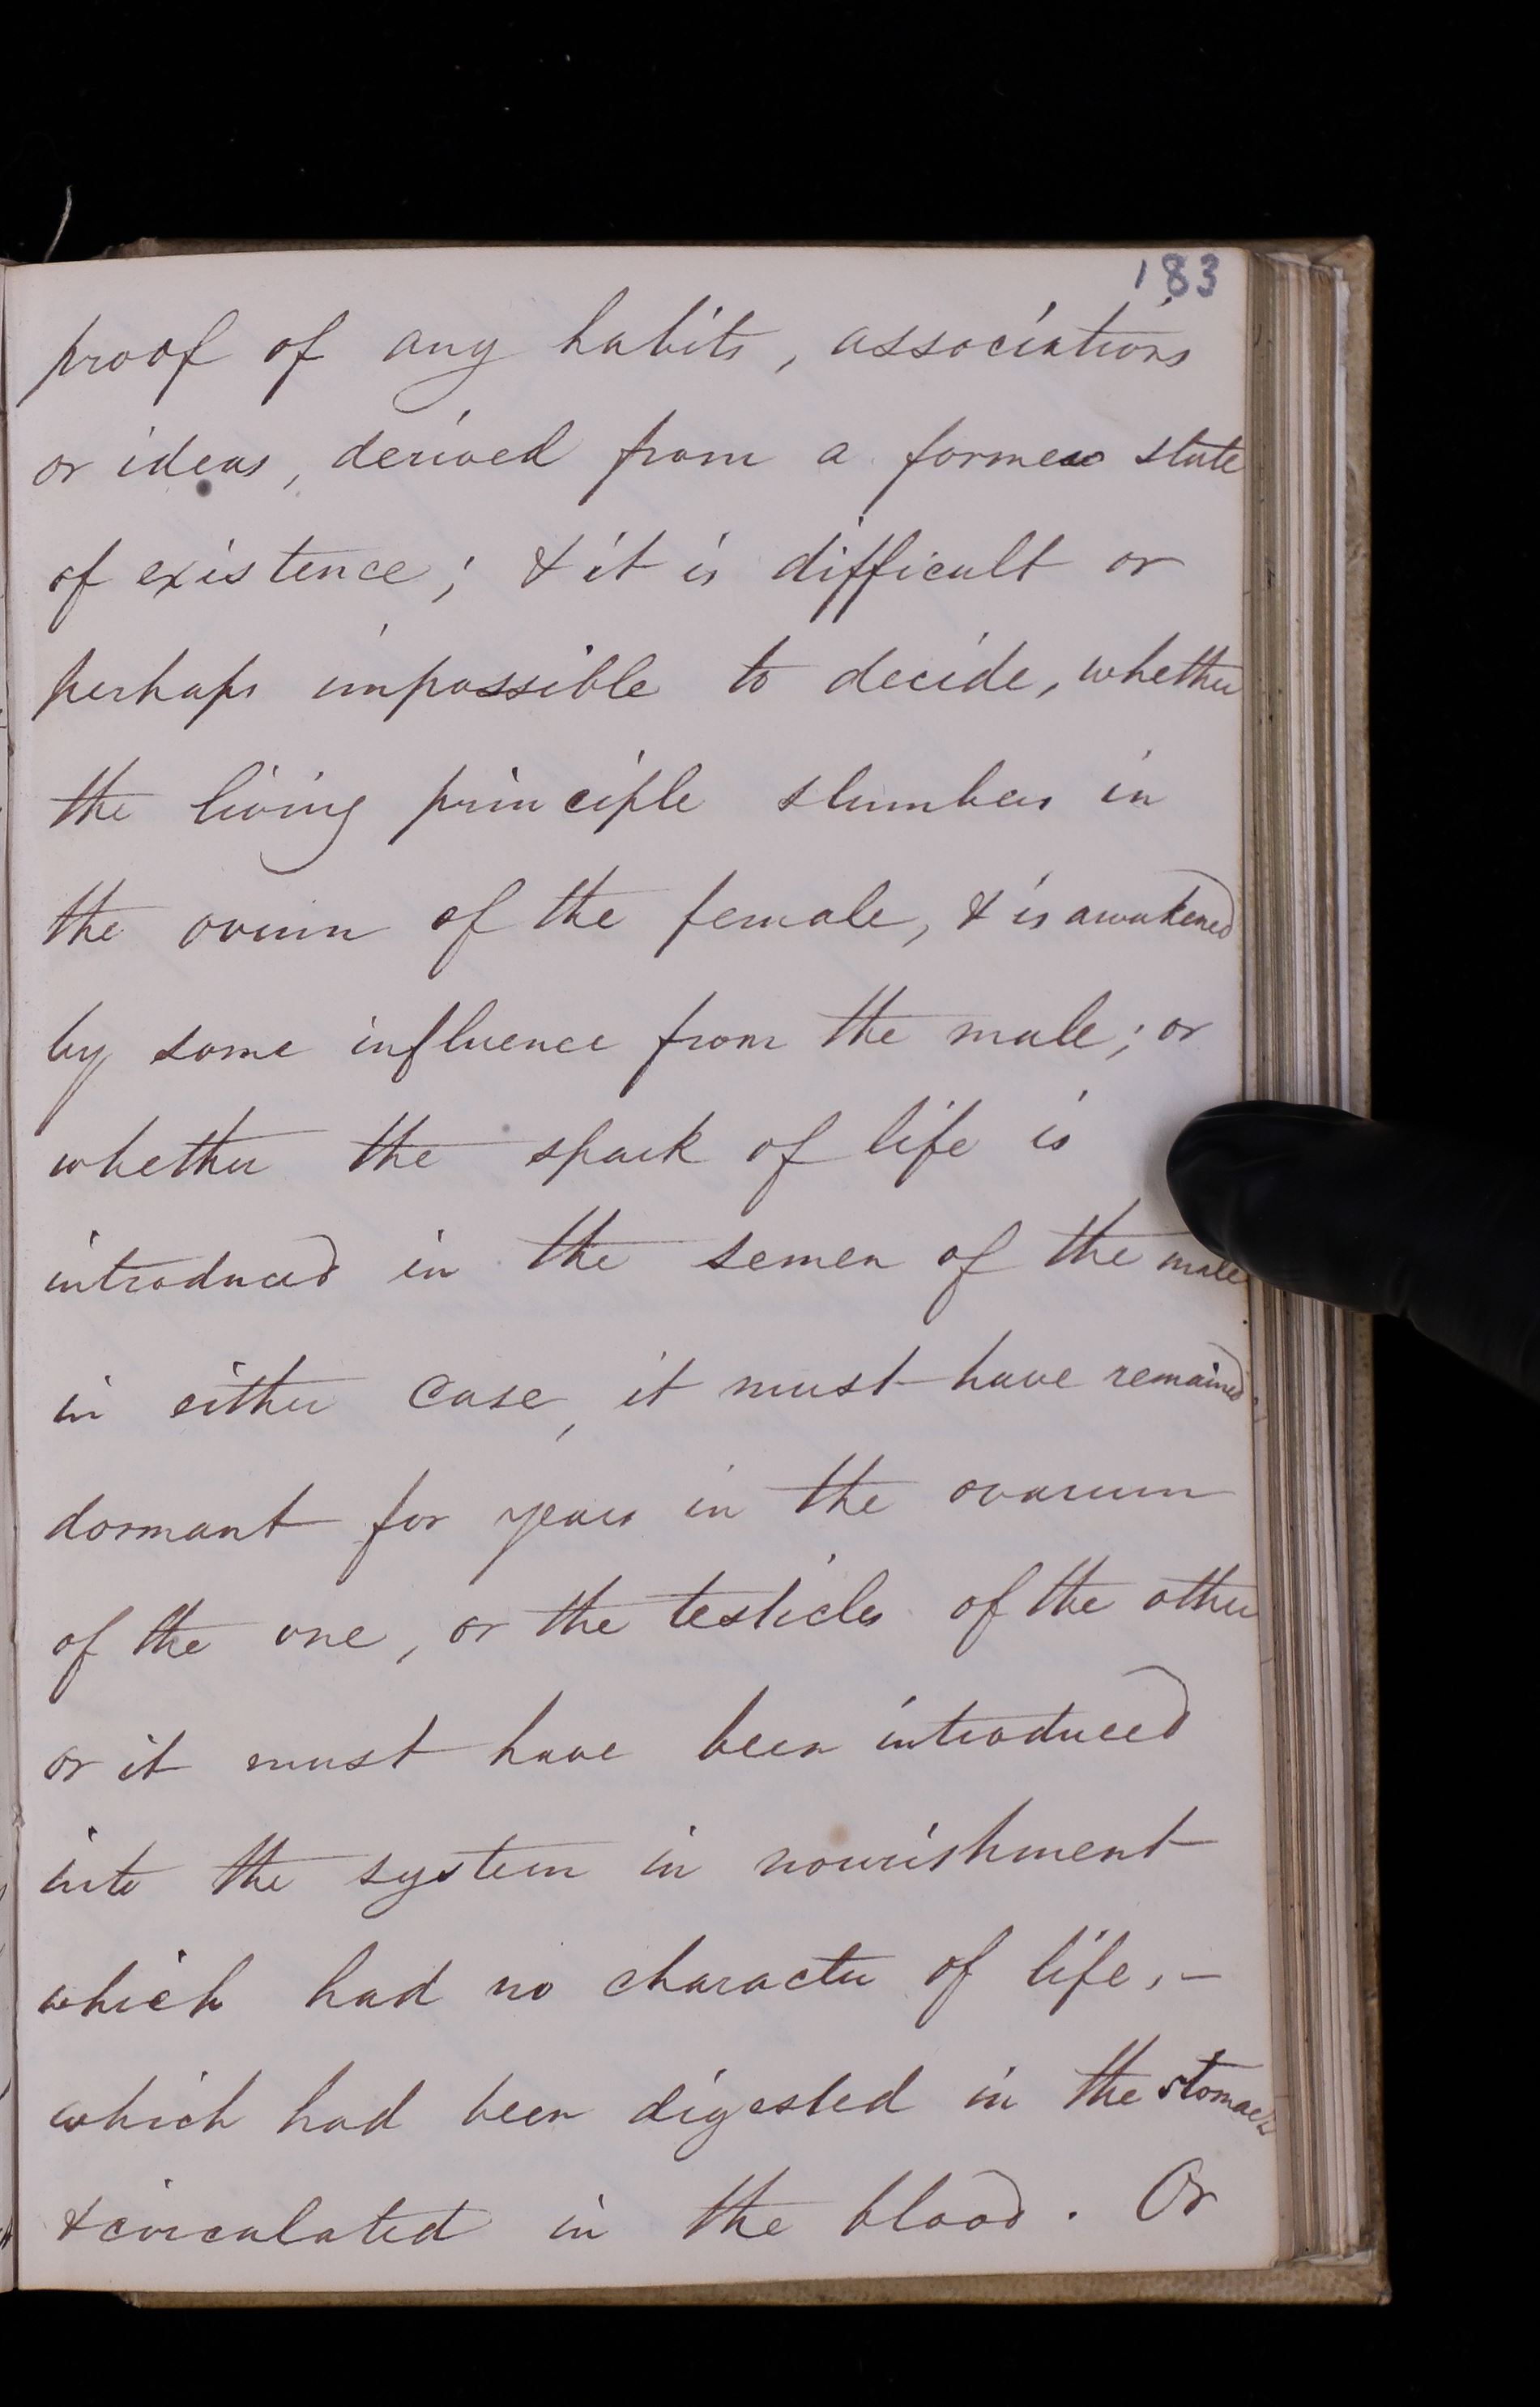 183
proof of any habits, associations
or ideas, derived from a former state
of existence; & it is difficult or
perhaps impossible to decide, whether
the living principle slumbers in
the ovum of the female, & is awakened
by some influence from the male; or
whether the spark of life is
introduced in the semen of the male.
in either case, it must have remained
dormant for years in the ovarium
of the one, or the testicles of the other
or it must have been introduced
into the system in nourishment
which had no character of life, -
which had been digested in the stomach
& circulated in the blood. Or